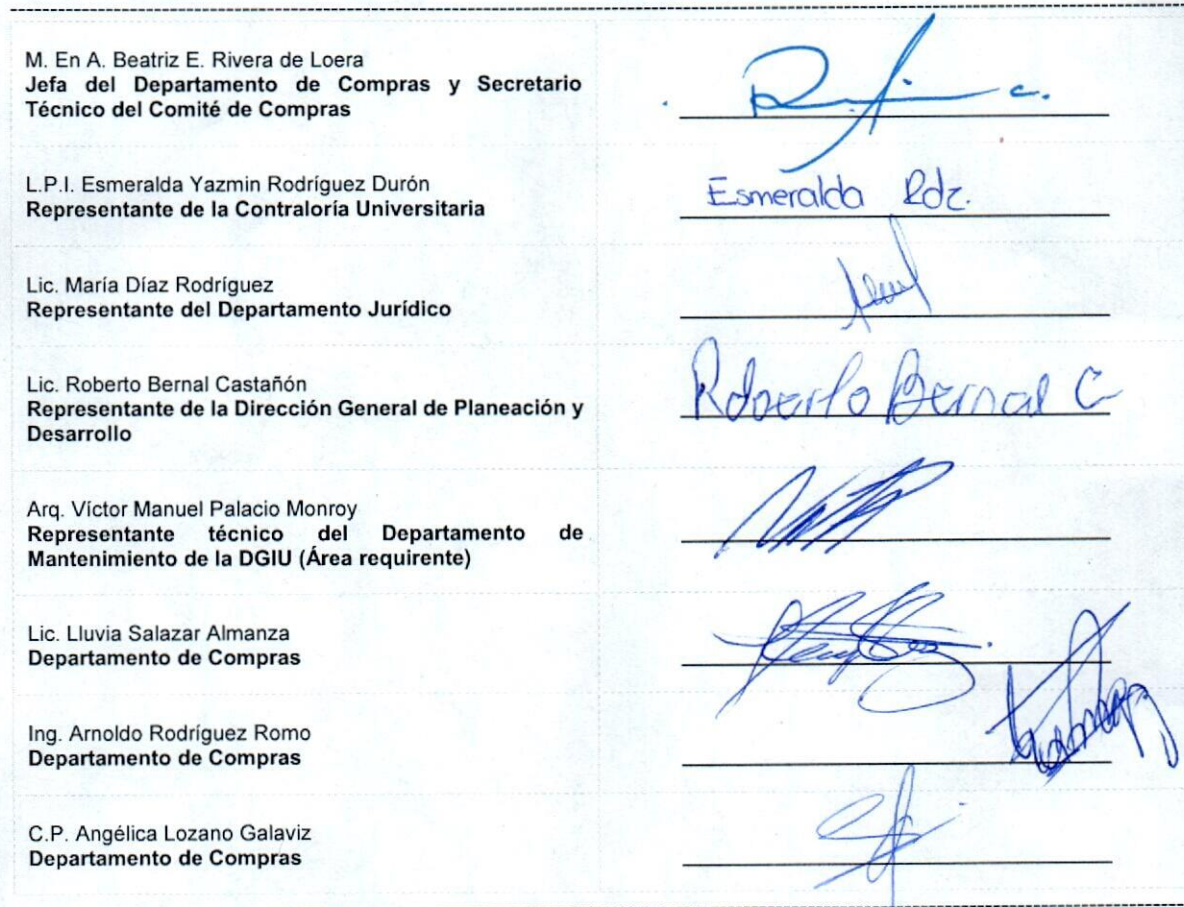 M. En A. Beatriz E. Rivera de Loera
Jefa del Departamento de Compras y Secretario
Técnico del Comité de Compras
L.P.I. Esmeralda Yazmin Rodríguez Durón
Representante de la Contraloría Universitaria
Esmeralda Rdz.
Lic. María Díaz Rodríguez
Representante del Departamento Jurídico
Lic. Roberto Bernal Castañón
Representante de la Dirección General de Planeación y
Desarrollo
Roberto Bernal C
Arq. Víctor Manuel Palacio Monroy
Representante técnico del Departamento de
Mantenimiento de la DGIU (Área requirente)
Lic. Lluvia Salazar Almanza
Departamento de Compras
Ing. Arnoldo Rodríguez Romo
Departamento de Compras
C.P. Angélica Lozano Galaviz
Departamento de Compras